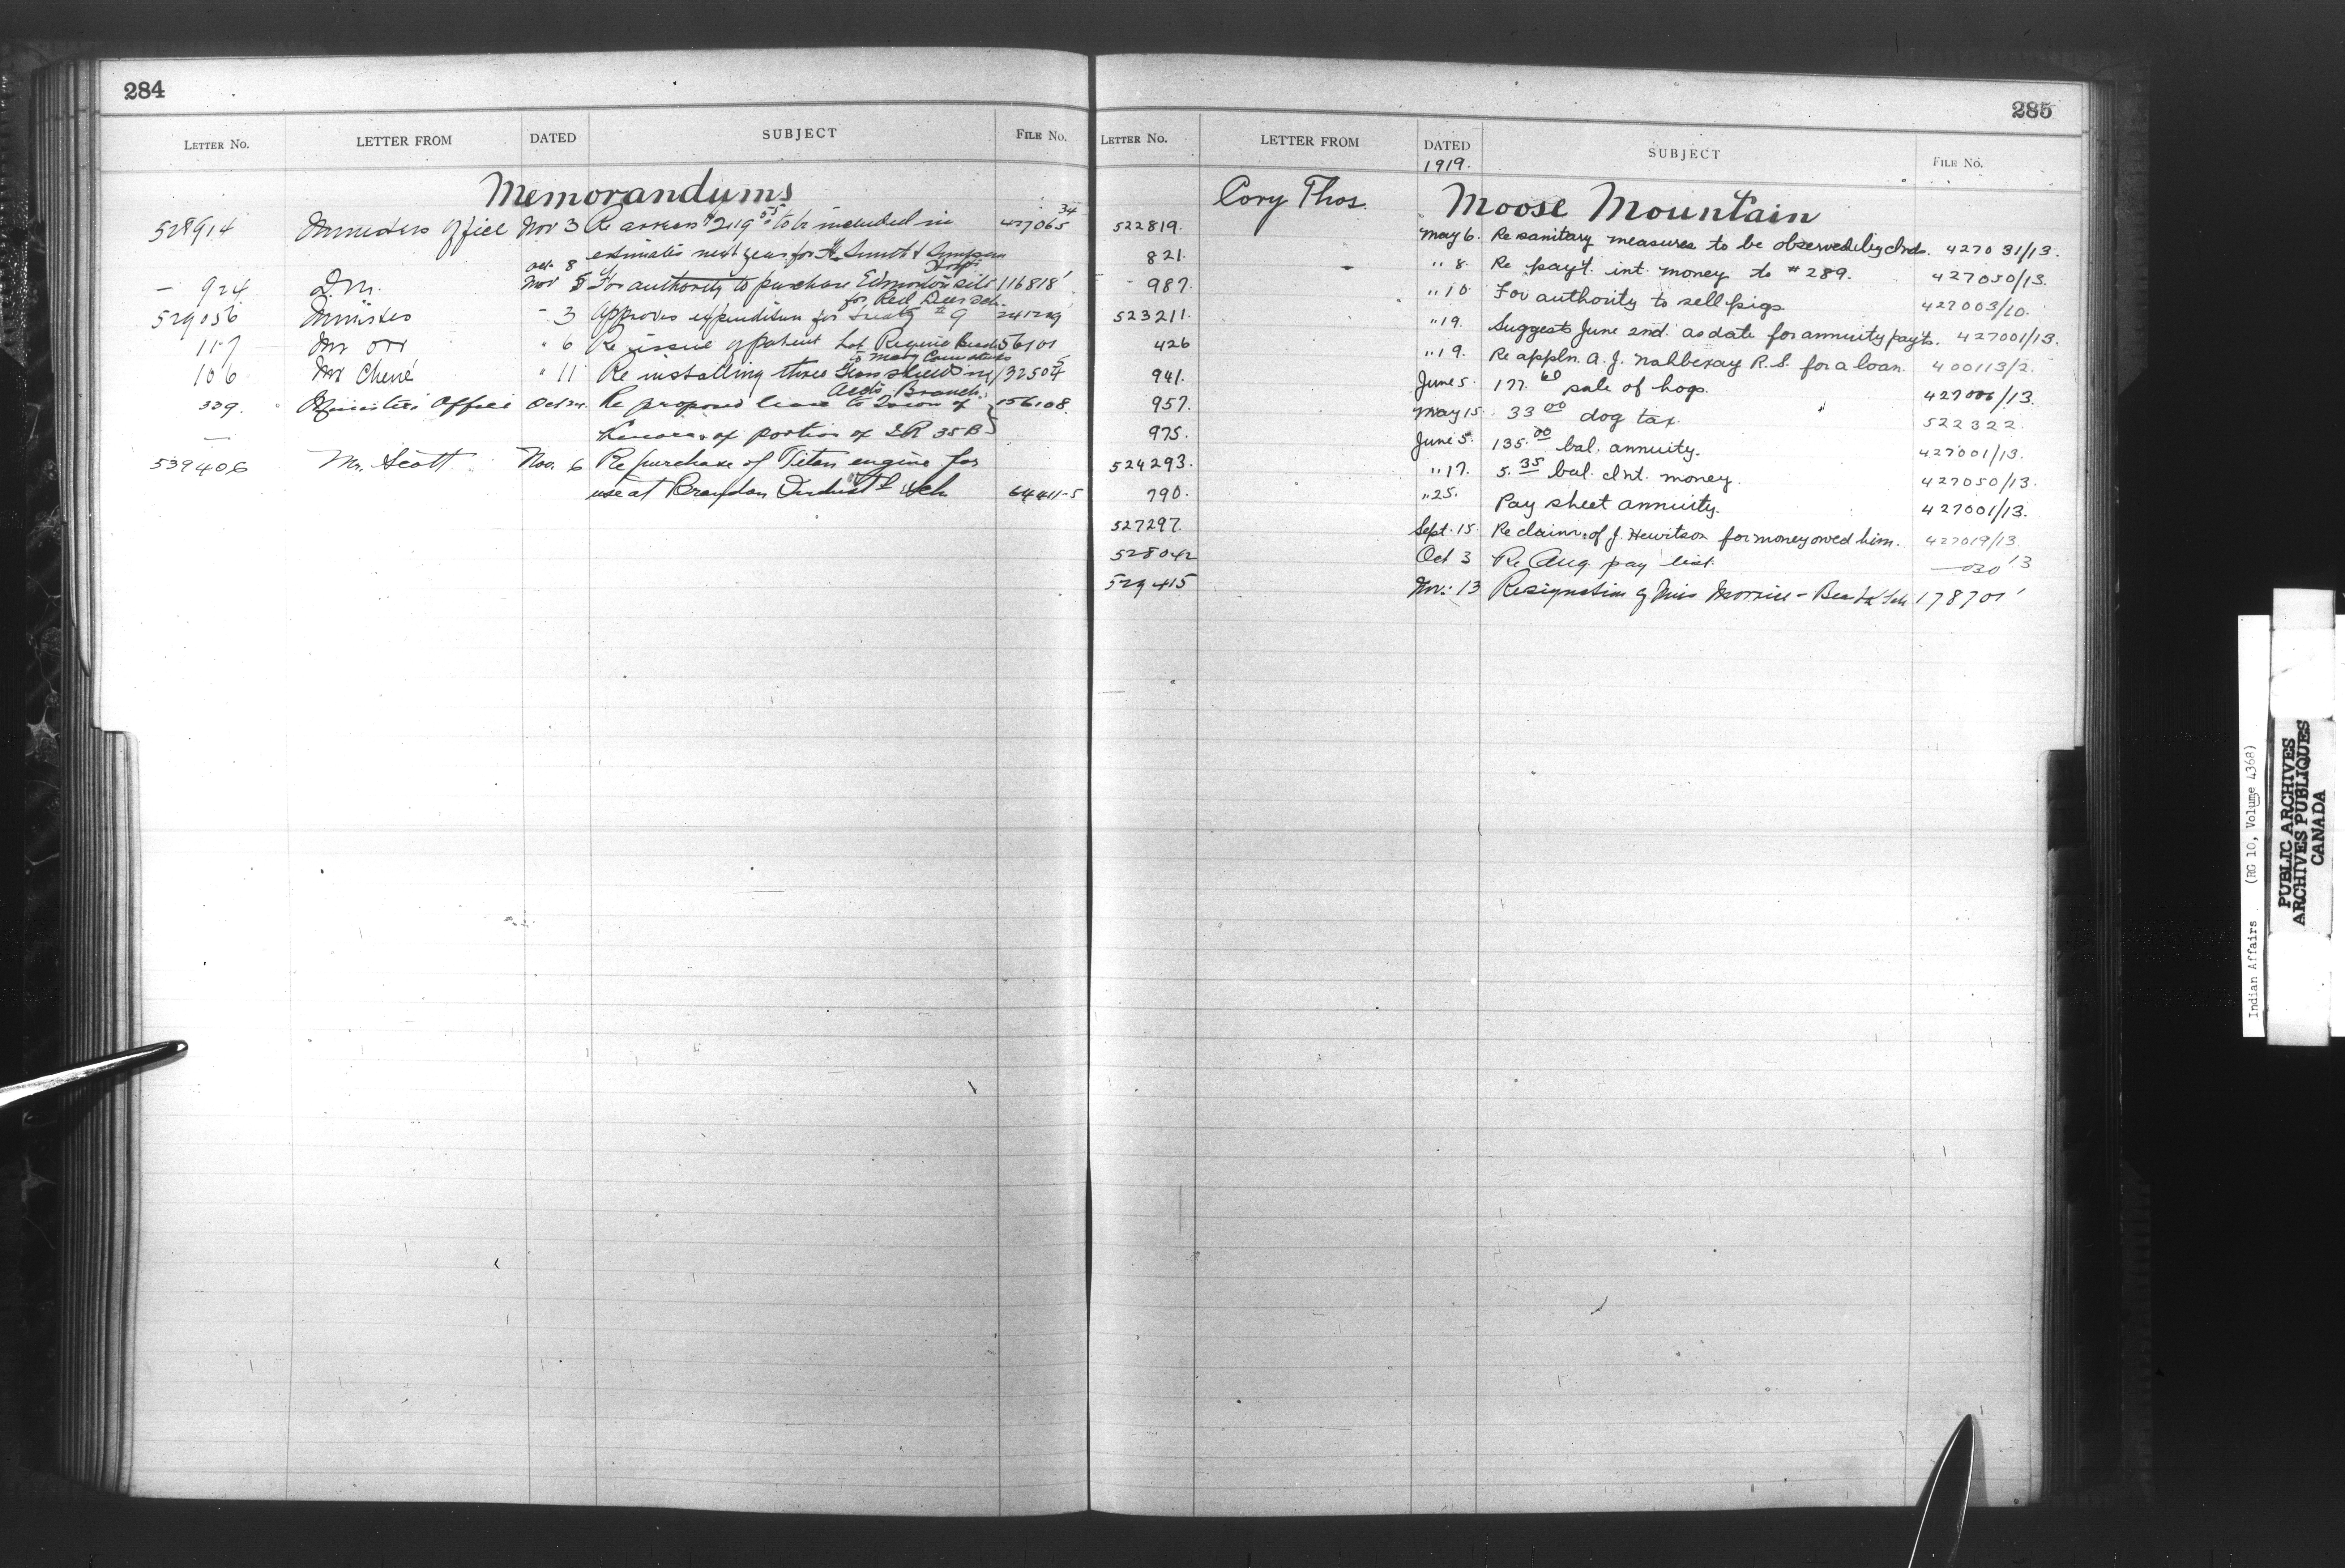 284
LETTER No. LETTER FROM DATED SUBJECT FILE No.
Memorandums
528914 Ministers Office Nov 3 Re arrears $219 55 to be included in 427065 34
estimates next year for H. Smith & Simpson
Hosp.
— 924 D.M. Oct 8 Nov 5 For authority to purchase Edmonton site 116818
for Red Deer Sch.
529056 Minister " 3 Approves expenditure for Treaty #9 241249
117 Mr Orr " 6 Re issue of patent Lot Regina 56101
to Mary
106 Mr Chené " 11 Re installing three in 132504
Acct's Branch
339. Minister's Office Oct 24. Re proposed lease to Town of 156108.
Kenora of portion of I R 38 B
539406 Mr. Scott Nov. 6 Re purchase of Titan engine for
use at Brandon Indust'l Sch. 64411-5
285
LETTER No. LETTER FROM DATED SUBJECT FILE No.
1919.
Cory Thos. Moose Mountain
522819. May 6. Re sanitary measures to be observed by Inds. 427031/13.
821. " 8. Re pay't. int. money to #289. 427050/13.
- 987. " 10 For authority to sell pigs. 427003/10.
523211. " 19. Suggests June 2nd. as date for annuity pay'ts. 427001/13.
426 " 19. Re appln. A. J. R.S. for a loan. 400113/2.
941. June 5. 177. 60 sale of hogs. 427006/13.
957. May 15. 33 00 dog tax. 522322.
975. June 5. 135. 00 bal. annuity. 427001/13.
524293. " 17. 5. 35 bal. Int. money. 427050/13.
790. " 25. Pay sheet annuity. 427001/13.
527297. Sept. 15. Re claim of J. Hewitson for money owed him. 427019/13
528042 Oct 3 Re Aug. pay list. —030 13
529415 Nov. 13 Resignation of Miss - Sch 178701
Indian Affairs (RG 10, Volume 4368)
PUBLIC ARCHIVES
ARCHIVES PUBLIQUES
CANADA